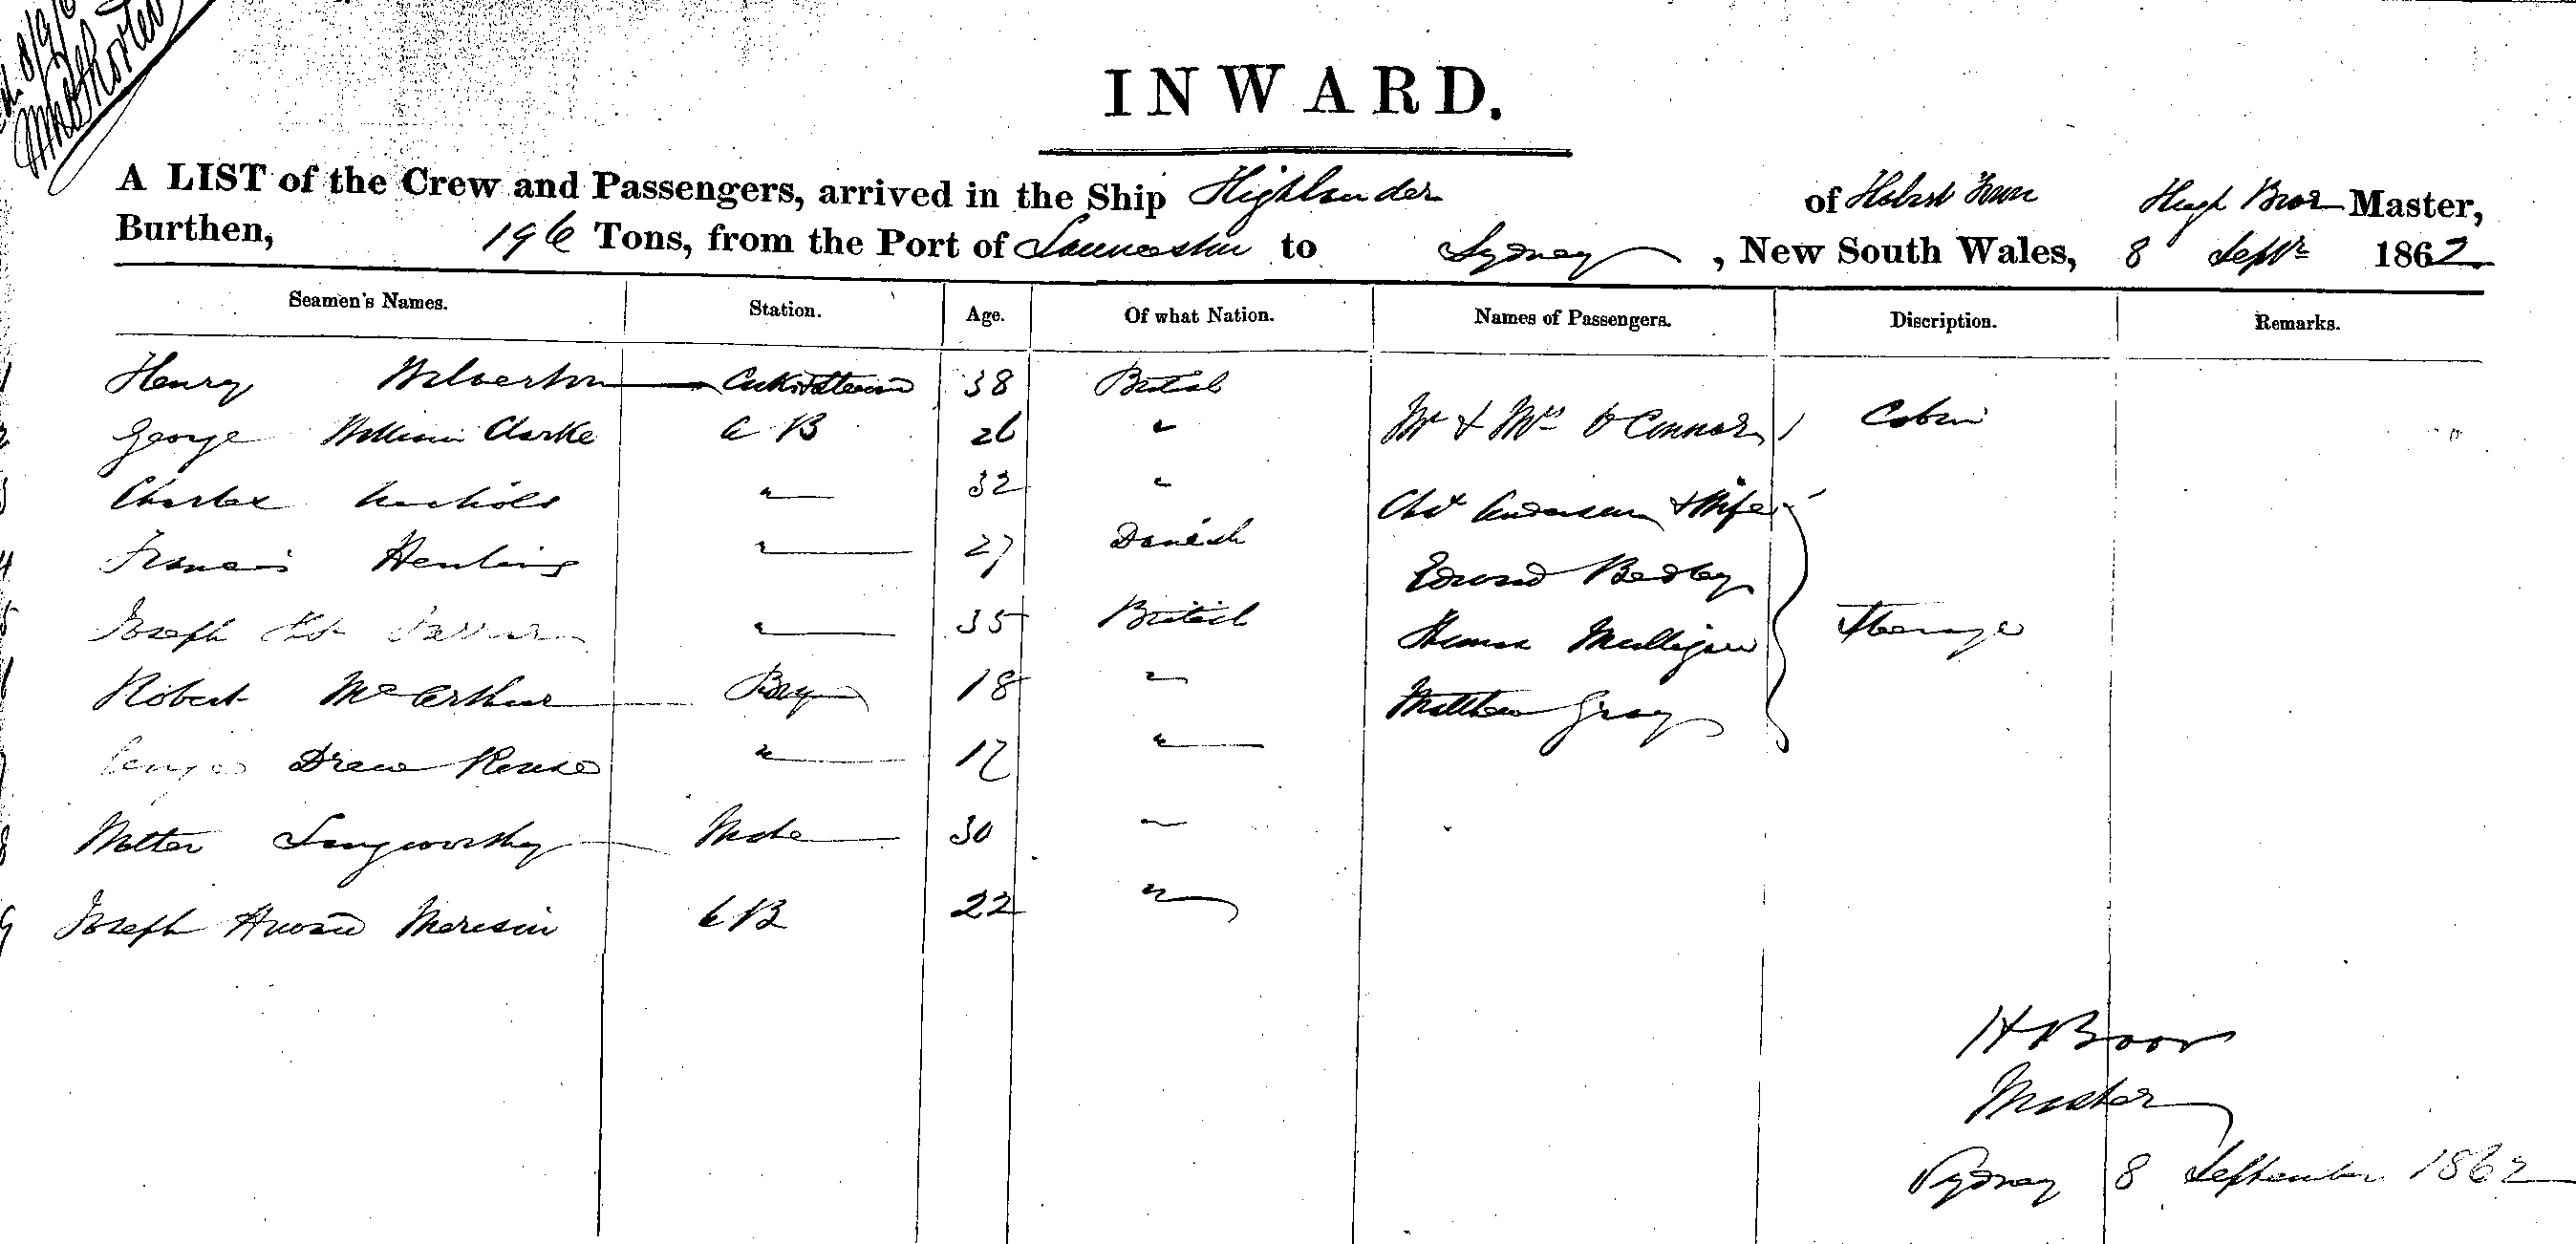 INWARD.
A LIST of the Crew and Passengers, arrived in the Ship Highlander of Hobart Town Hugh Boor Master,
Burthen, 196 Tons, from the Port of Launceston to Sydney, New South Wales, 8 Septr 1862.
Seamen's Names. Station. Age. Of what Nation. Names of Passengers. Discription. Remarks.
1 Henry Wolverton 38 British
2 George William Clarke A B 26 " Mr & Mrs O'Connor Cabin
3 Charles Nichols " 32 " Chs Andersen & Wife
4 Francis " 27 Danish Edward
5 Joseph " 35 British Thomas Mulligan Steerage
Robert McArthur Boy 18 " Matthew Gray
Drew Rouse " 17 "
8 Walter Langworthy Mate 30 "
9 Joseph A B 22 "
H Boor
Master
Sydney 8 September 1862